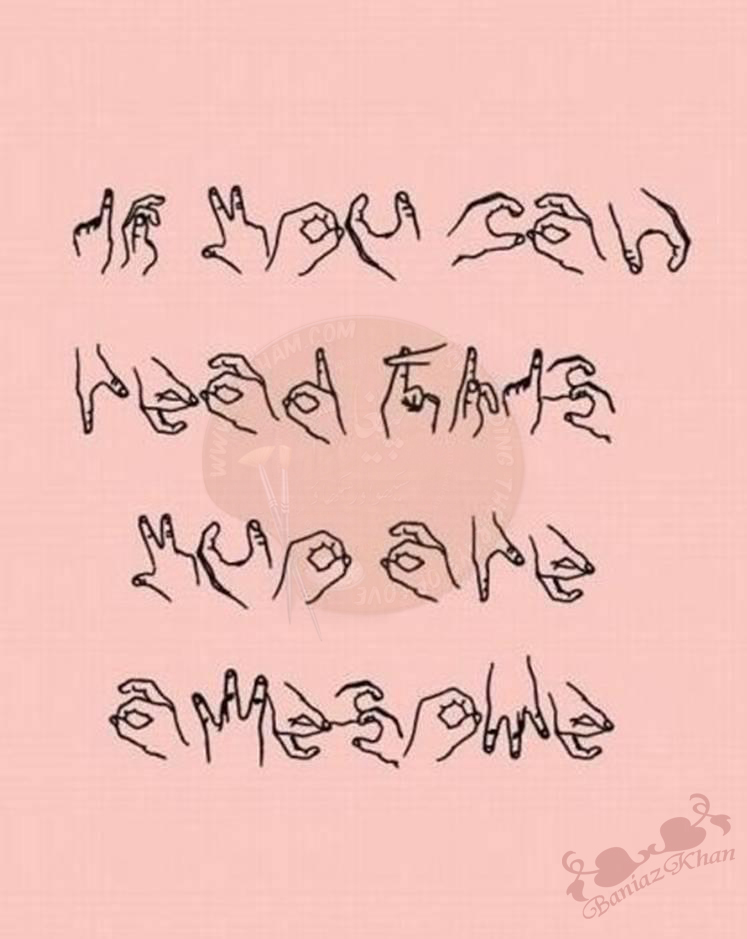 if you can
read this
yuo are
awesome
Baniaz Khan